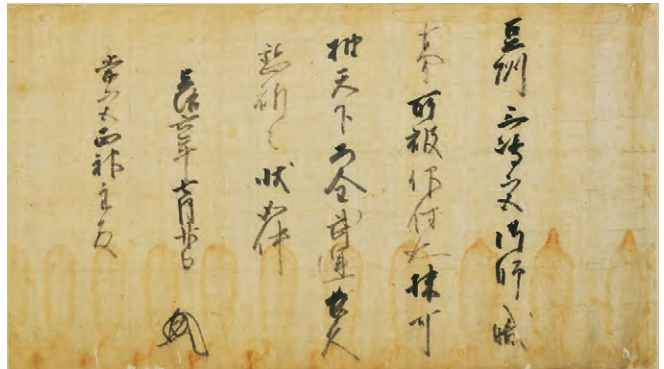 豆州三嶋宮御師職
事所被仰付也殊可
抽天下安全武運長久
懇祈之状如件
六年七月
当宮西神主殿